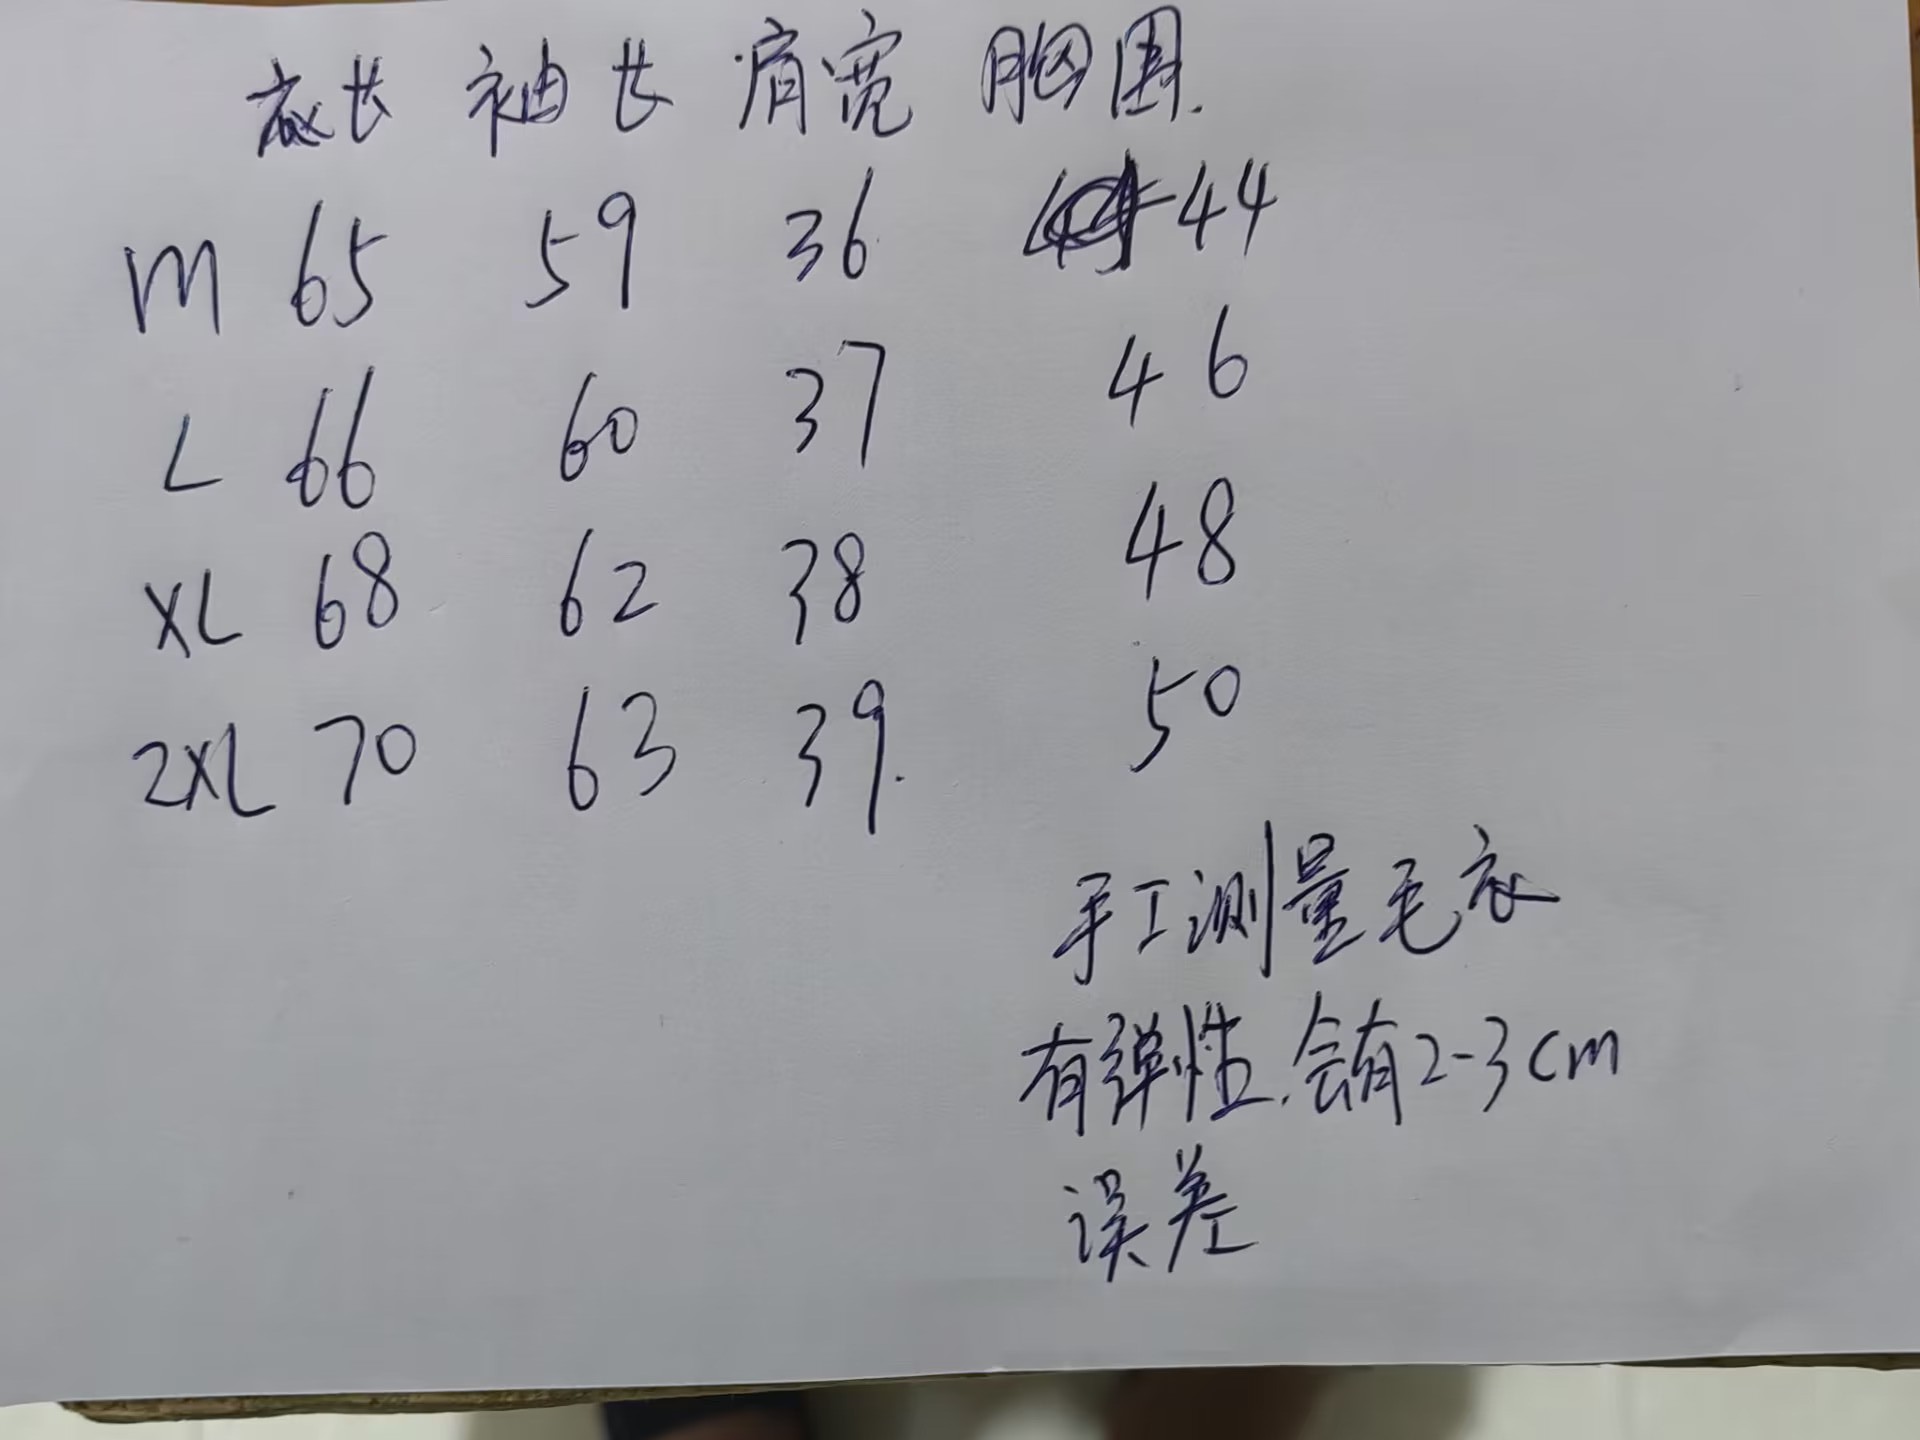 衣长 袖长 肩宽 胸围.
M 65 59 36 44
L 66 60 37 46
XL 68 62 38 48
2XL 70 63 39. 50
手工测量毛衣
有弹性.会有2-3cm
误差